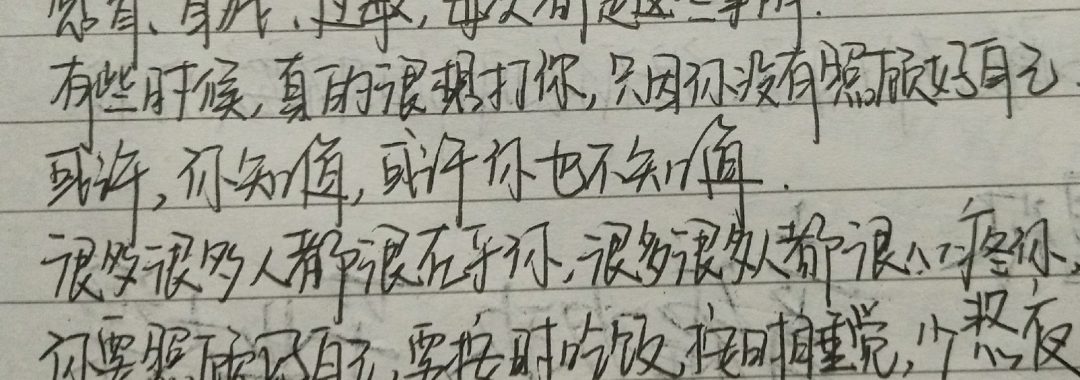 有些时候,真的很想打你,只因你没有照顾好自己.
或许,你知道,或许你也不知道.
很多很多人都很在乎你,很多很多人都很心疼你,
你要照顾好自己,要按时吃饭,按时睡觉,少熬夜